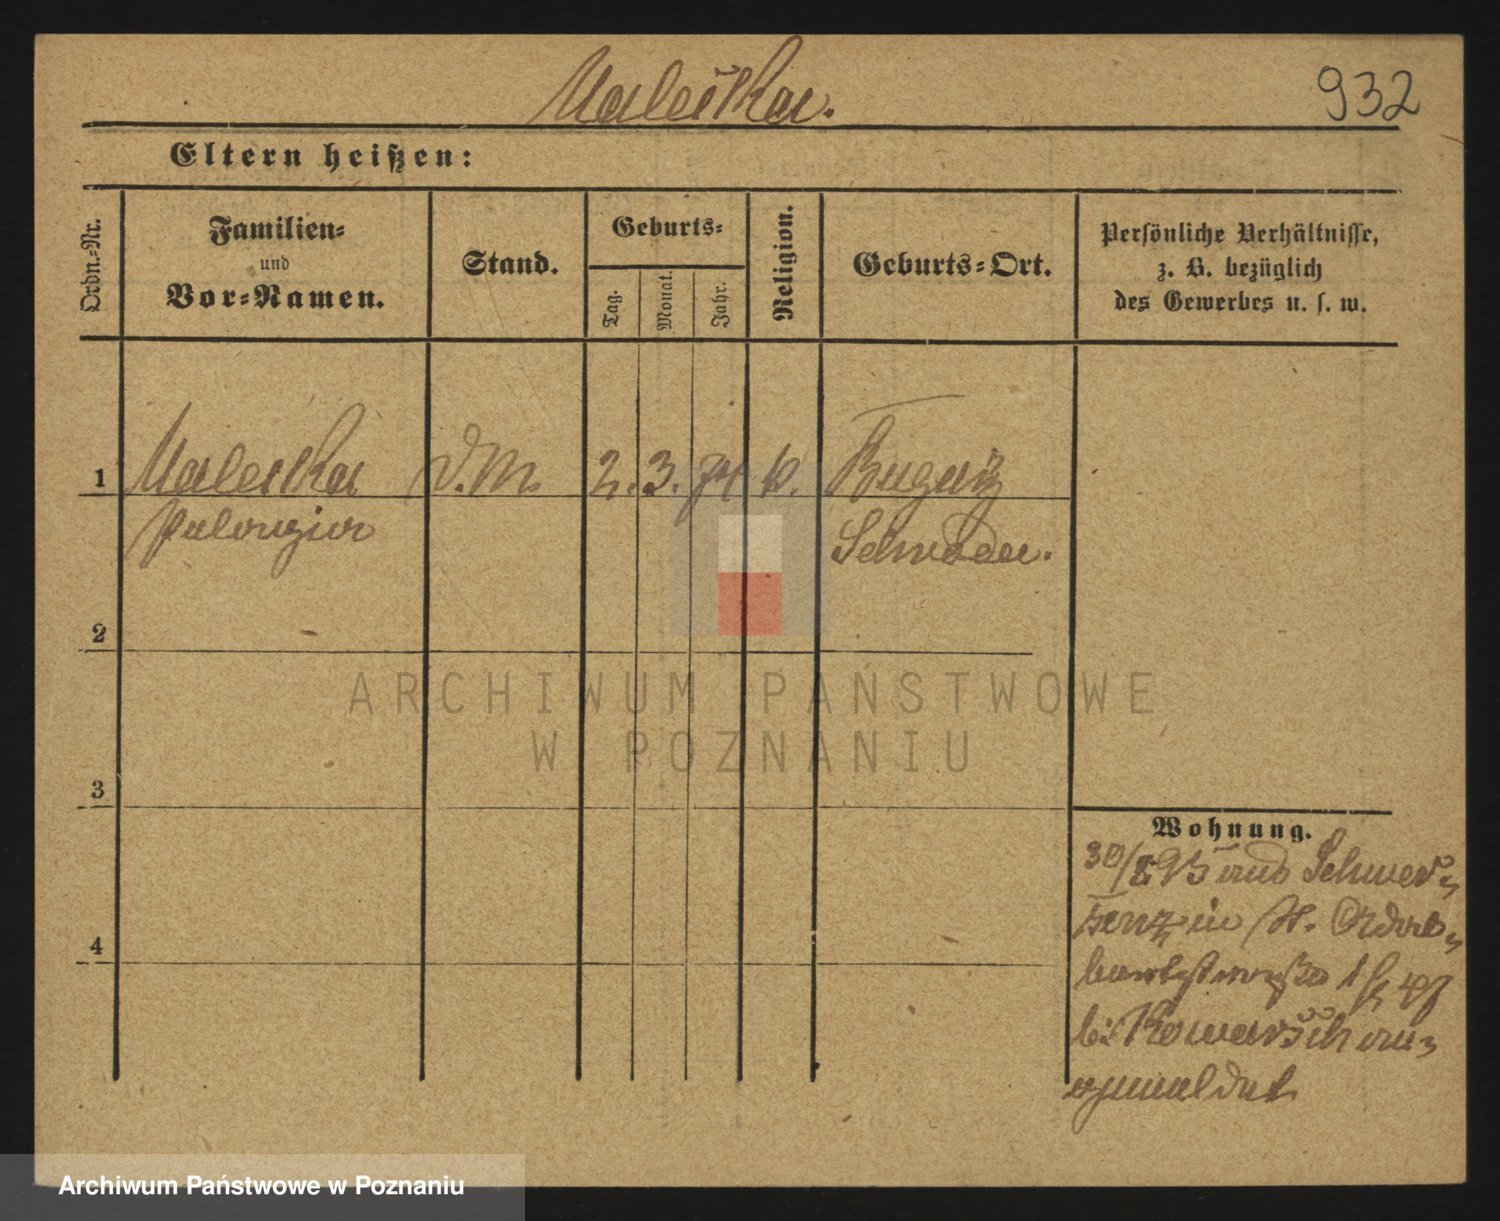 Maleška.
932
Eltern heißen:
Ordn.-Nr.
Familien-
und
Vor-Namen.
Stand.
Geburts-
Tag.
Monat.
Jahr.
Religion.
Geburts-Ort.
Persönliche Verhältnisse,
z. B. bezüglich
des Gewerbes u. s. w.
1 Maleska D.M. 2. 3. 74 k. Bugaiz
Pelagia Schroda.
2
3
4
Wohnung.
30/8 95 aus Schwer-
senz in St.
1
b:
gemeldet
ARCHIWUM PAŃSTWOWE
W POZNANIU
Archiwum Państwowe w Poznaniu